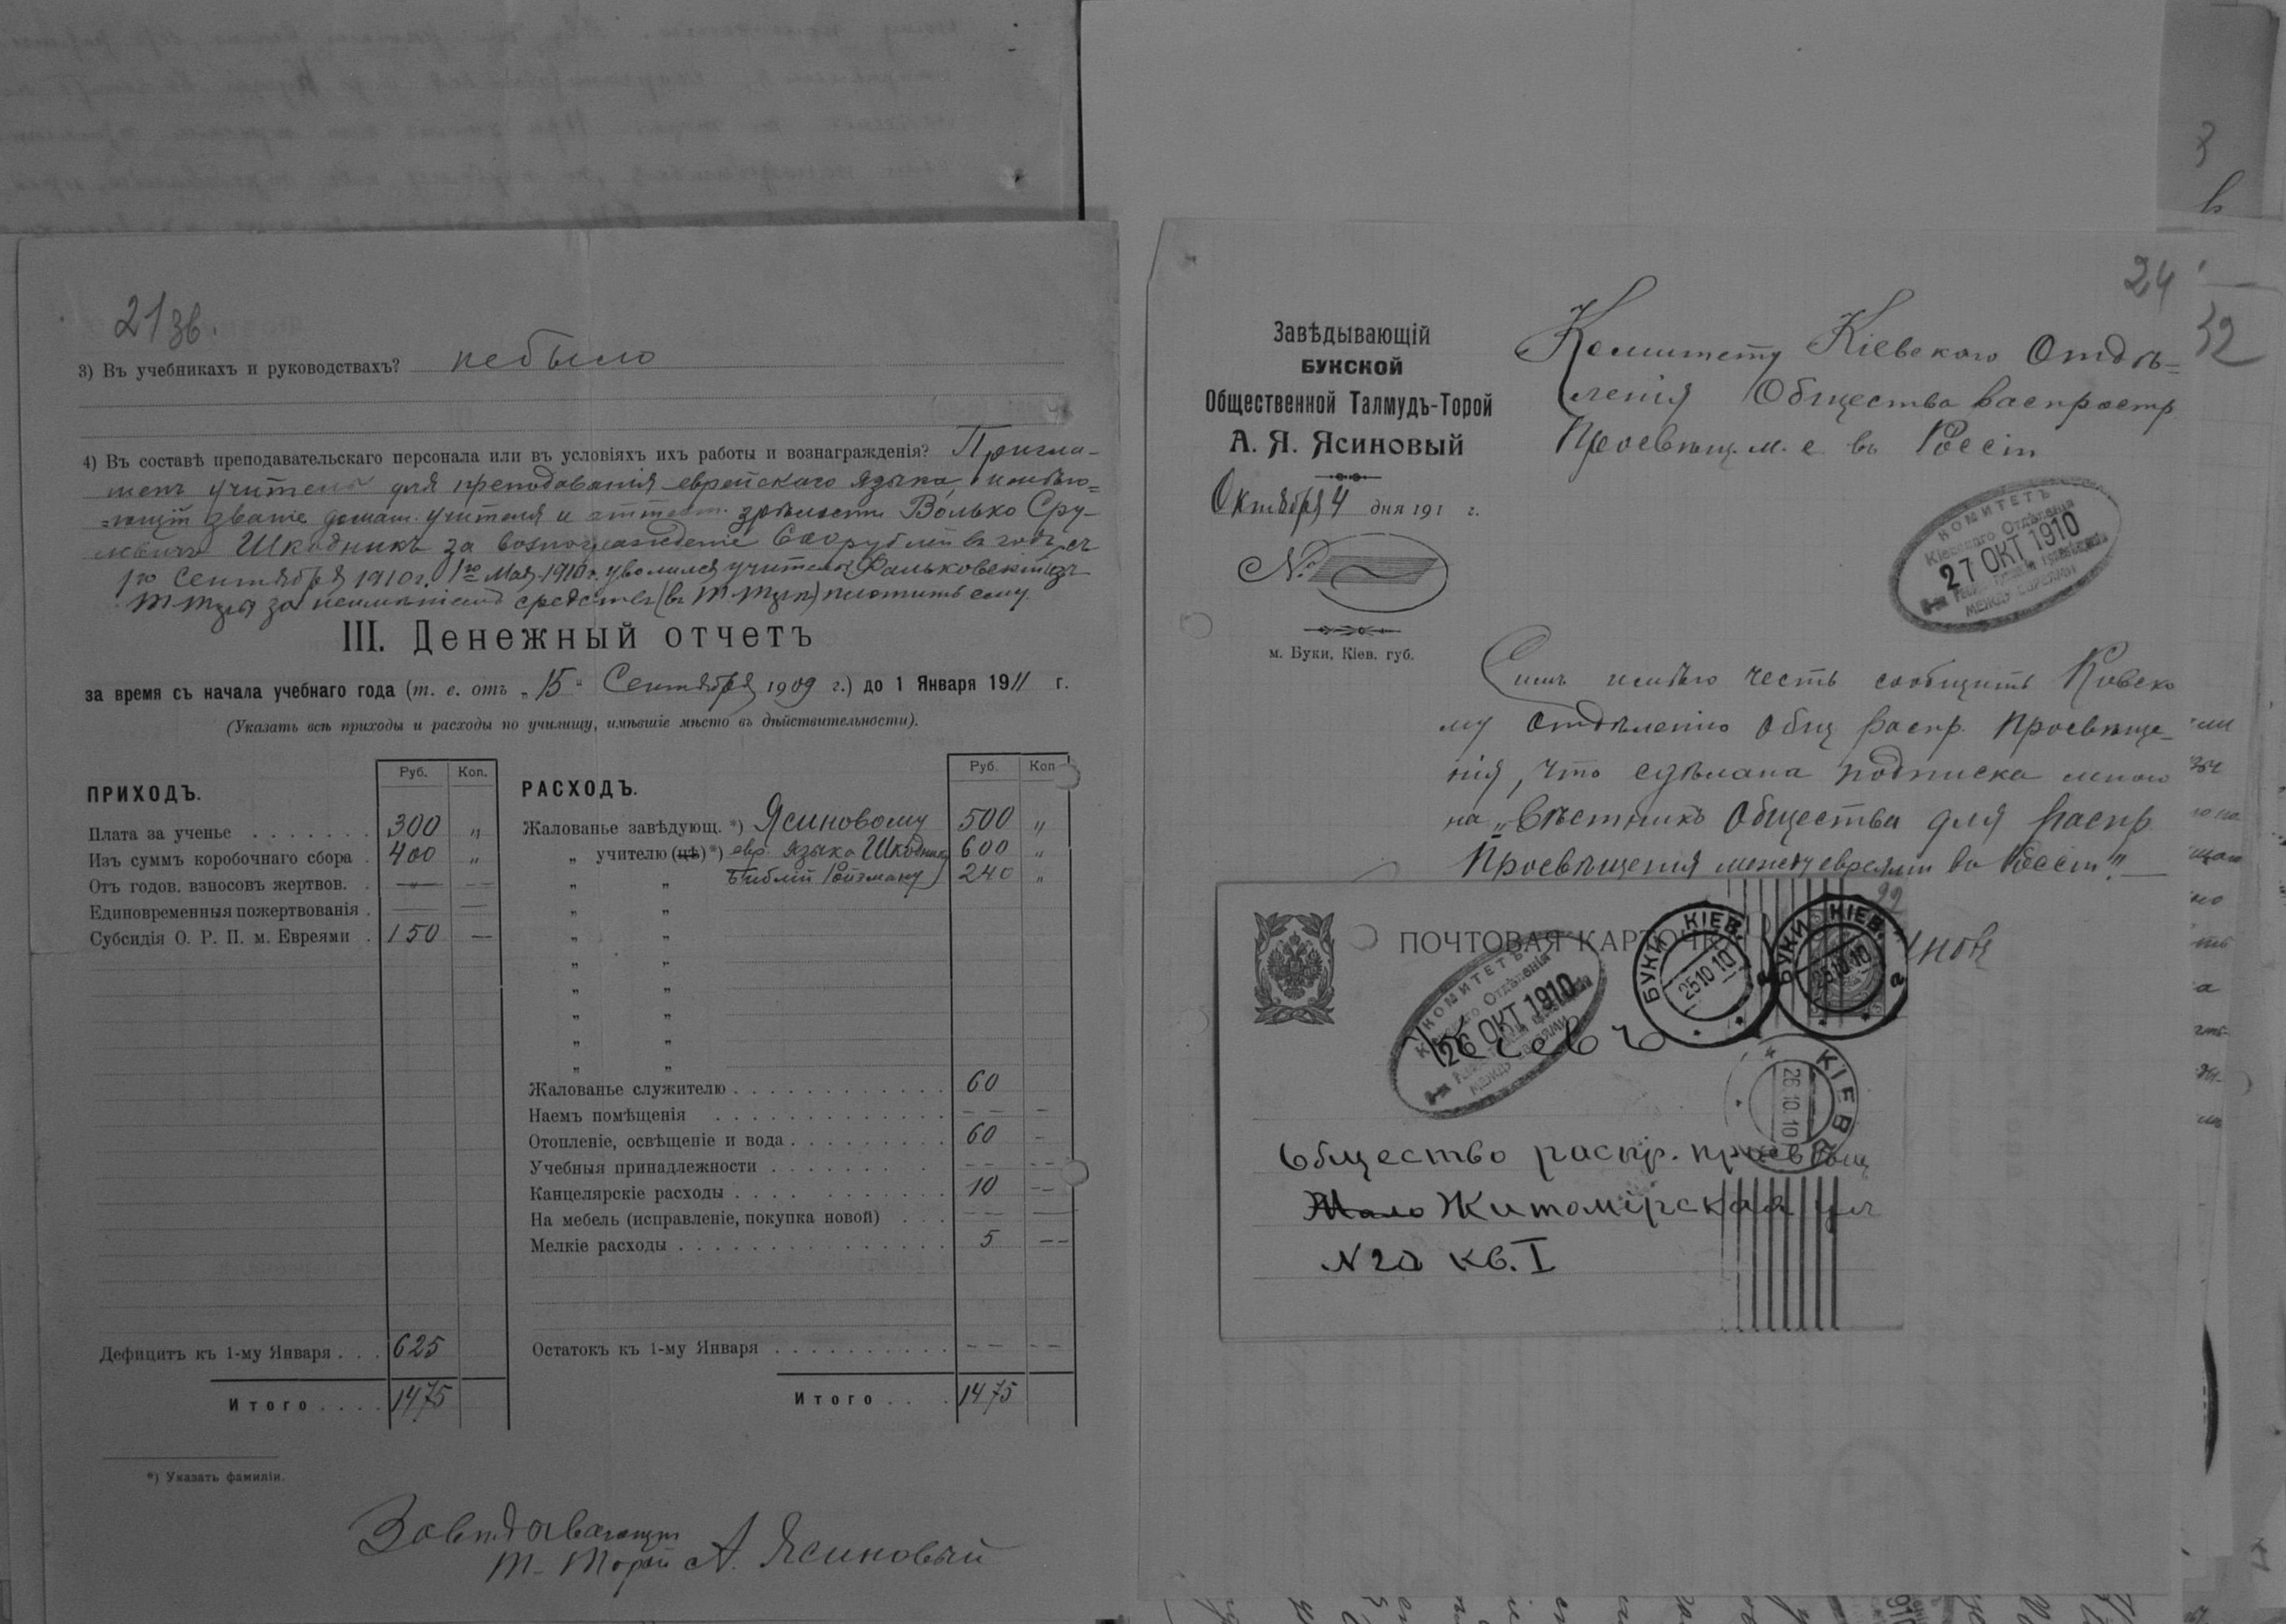 21 зв.
3) Въ учебникахъ и руководствахъ? небыло
4) Въ составѣ преподавательскаго персонала или въ условіяхъ ихъ работы и вознагражденія? Пригла-
шенъ учитель для преподаванія еврейскаго языка, имѣю=
=ющій званіе домаш. учителя и аттест. зрѣлости Волько Сру-
левичъ Шкодникъ за вознагражденіе 600 рублей въ годъ, съ
1го Сентября 1910 г. 1го Мая 1910 г. уволился учитель Фальковскій изъ
за неимѣніемъ средствъ платить ему.
III. Денежный отчетъ
за время съ начала учебнаго года (т. е. отъ „15" Сентября 1909 г.) до 1 Января 1911 г.
(Указать всѣ приходы и расходы по училищу, имѣвшіе мѣсто въ дѣйствительности).
ПРИХОДЪ. Руб. Коп.
Плата за ученье 300 „
Изъ суммъ коробочнаго сбора 400 „
Отъ годов. взносовъ жертвов. — —
Единовременныя пожертвованія — —
Субсидія О. Р. П. м. Евреями 150 —
Дефицитъ къ 1-му Января 625
Итого 1475
РАСХОДЪ. Руб. Коп
Жалованье завѣдующ. *) Ясиновому 500 „
„ учителю (цѣ) *) евр. языка Шкоднику 600 „
„ „ Библіи Ройзману 240 „
„ „
„ „
„ „
„ „
„ „
„ „
„ „
Жалованье служителю 60
Наемъ помѣщенія — — —
Отопленіе, освѣщеніе и вода 60 —
Учебныя принадлежности — — — —
Канцелярскіе расходы 10 — —
На мебель (исправленіе, покупка новой) — — —
Мелкіе расходы 5 — —
Остатокъ къ 1-му Января — — — —
Итого 1475
*) Указать фамиліи.
Завѣдывающій
Т-Торой А. Ясиновый
24
32
Завѣдывающій
БУКСКОЙ
Общественной Талмудъ-Торой
А. Я. Ясиновый
Октября 4 дня 191 г.
№
м. Буки, Кіев. губ.
Комитету Кіевскаго Отдѣ=
ленія Общества Распростр
Просвѣщ. м. е въ Россіи
КОМИТЕТЪ
Кіевскаго Отдѣленія
27 ОКТ 1910
МЕЖДУ ЕВРЕЯМИ
Симъ имѣю честь сообщить Кіевско
му Отдѣленію Общ Распр. Просвѣще-
нія, что сдѣлана подписка мною
на „Вѣстникъ Общества для Распр
Просвѣщенія между евреями въ Россіи".
ПОЧТОВАЯ КАРТОЧКА
БУКИ КІЕВ.
25 10 10
БУКИ КІЕВ.
25 10 10
КОМИТЕТЪ
Кіевскаго Отдѣленія
26 ОКТ 1910
МЕЖДУ ЕВРЕЯМИ
Кіевъ
КІЕВЪ
26.10.10
Общество распр. просвѣщ
Мало Житомірская ул
N 20 кв. I